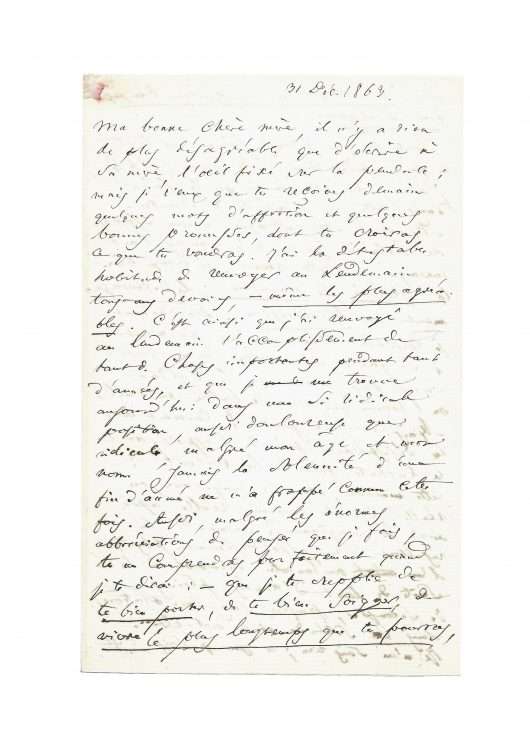 31 Déc. 1863.
Ma bonne chère mère, il n'y a rien
de plus désagréable que d'écrire à
sa mère, l'œil fixé sur la pendule ;
mais je veux que tu reçoives demain
quelques mots d'affection et quelques
bonnes promesses, dont tu croiras
ce que tu voudras. J'ai la détestable
habitude de renvoyer au lendemain
tous mes devoirs, – même les plus agréa-
bles. C'est ainsi que j'ai renvoyé
au lendemain l'accomplissement de
tant de choses importantes pendant tant
d'années, et que je me trouve
aujourd'hui dans une si ridicule
position, aussi douloureuse que
ridicule, malgré mon âge et mon
nom. Jamais la solennité d'une
fin d'année ne m'a frappé comme cette
fois. Aussi, malgré les énormes
abbréviations de penser que je fais,
tu me comprendras parfaitement quand
je te dirai : – que je te supplie de
te bien porter, de te bien soigner, de
vivre le plus longtemps que tu pourras,